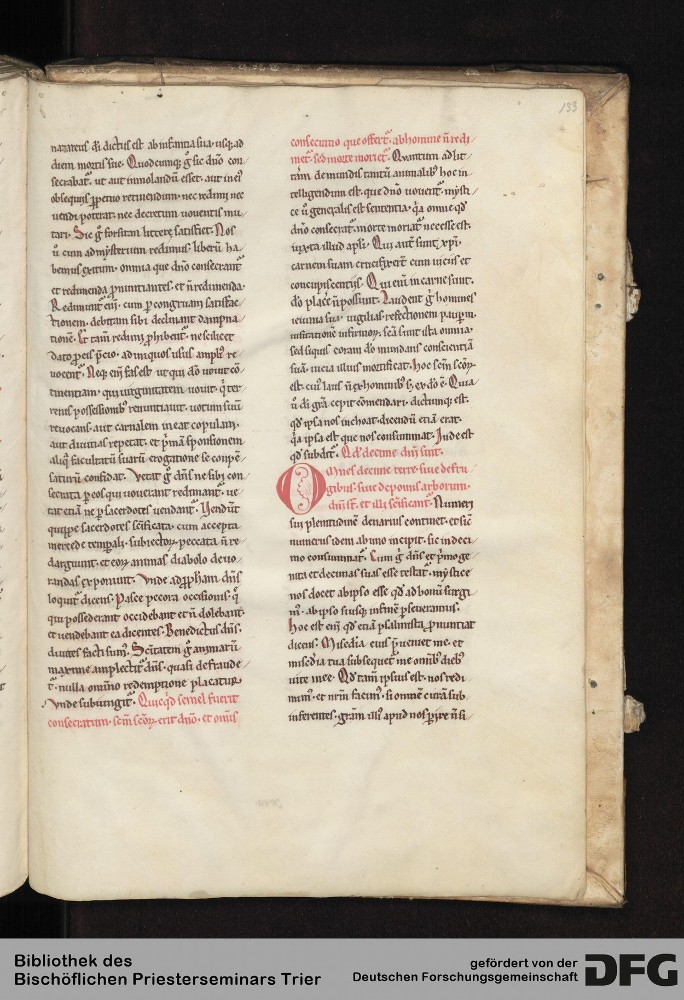 133
nazareus di dictus est ab infantia sua usq; ad
diem mortis sue. Quodcumq; g̃ sic dño con-
secrabat᷑. ut aut immolandũ esset. aut in ei᷒
obsequiis ꝑpetuo retinendum. nec redimi nec
uendi poterat. nec decretum uouentis mu-
tari. Sic g̃ forsitam littere satisfiet. Nos
ũ cum ad mysterium redimus. liberũ ha-
bemus exitum. omnia que dño consecrant᷑
et redimenda ꝓnuntiantes. et ñ redimenda.
Redimunt᷑ eni. cum ꝑ congruam satisfac-
tionem. debitam sibi declinant dampna-
tionẽ. Et tam̃ redimi ꝓhibent᷑. ne scilicet
dato ꝑ eis p̃cio. ad iniquos usus ampli᷒ re-
uocent᷑. Neq; eni fas est ut qui dõ uouit cõ-
tinentiam. qui uirginitatem uouit. q̇ ter-
renis possessionib᷒ renuntiauit. uotum suũ
reuocans. aut carnalem ineat copulam.
aut diuitias repetat. et p̃mã sponsionem
aliq̃ facultatũ suarũ erogatione se conpe-
saturũ confidat. Vetat g̃ dñs ne sibi con-
secrata ꝑ eos qui uouerant redimant᷑. ue-
tat etiã ne ꝑ sacerdotes uendant᷑. Vendũt
quippe sacerdotes sc̃ificata. cum accepta
mercede temꝑali. subiectoꝝ peccata ñ re-
darguunt. et eoꝝ animas diabolo deuo-
randas exponunt. Vnde ad ꝓpham dñs
loquit᷑ dicens. Pasce pecora occisionis. q̃
qui possederant occidebant et ñ dolebant.
et uendebant ea dicentes. Benedictus dñs.
diuites facti sum᷒. Sc̃itatem g̃ animarũ
maxime amplectit᷑ dñs. quasi defraude-
t᷑. nulla omnino redemptione placatur.
Vnde subiungit᷑. Quicq̇d semel fuerit
consecratum. sc̃m sc̃oꝝ erit dño. et om̃is
consecratio que offert᷑. ab homine ñ redi-
met᷑. sed morte moriet᷑. Quantum ad lit-
tãm. de mundis tantũ animalib᷒ hoc in-
telligendum est. que dño uouent᷑. mysti-
ce ũ generalis est sententia. q̇a omne qd᷒
dño consecrat᷑. morte moriat᷑ necesse est.
iuxta illud apli. Qui aut̃ sunt xp̃i.
carnem suam crucifixerũt cum uiciis et
concupiscentiis. Qui eni in carne sunt.
dõ placẽ ñ possunt. Laudent g̃ homines
ieiunia sua. uigilias. refectionem pauꝑum.
uisitatione infirmoꝝ. sc̃a sunt ista omnia.
sed siquis coram dõ mundans conscientiã
suã. in ea illius mortificat᷑. hoc sc̃m sc̃oꝝ
est. cui᷒ laus ñ ex hominib᷒ s; ex dõ ẽ. Quia
ũ di grã cepit cõmendari. dictumq; est.
qd᷒ ipsa nos inchoat. dicendũ etiã erat.
q̇a ipsa est que nos consummat. Inde est
qd᷒ subdit᷑. Qd᷒ decime dñi sunt.
Omnes decime terre. siue de fru-
gibus. siue de pomis arborum.
dñi st̃. et illi sc̃ificant᷑. Numeri
sui plenitudinẽ denarius continet. et sic̃
numerus idem ab uno incipit. sic in deci-
mo consummat᷑. Cum g̃ dñs et p̃moge-
nita et decimas suas esse testat᷑. mystice
nos docet ab ipso esse qd᷒ ad bonũ surgi-
m᷒. ab ipso siusq; in finẽ ꝑseueramus.
Hoc est eni qd᷒ etiã psalmista ꝓnuntiat
dicens. Misedia eius p̃ueniet me. et
misedia tua subsequet᷑ me omib᷒ dieb᷒
uite mee. Qd᷒ tam̃ ipsius est. nos redi-
mim᷒. et nr̃m facim᷒. si omnẽ curã sub-
inferentes. grãm illi᷒ apud nos ꝑire ñ si-
Bibliothek des
Bischöflichen Priesterseminars Trier
gefördert von der
Deutschen Forschungsgemeinschaft
DFG